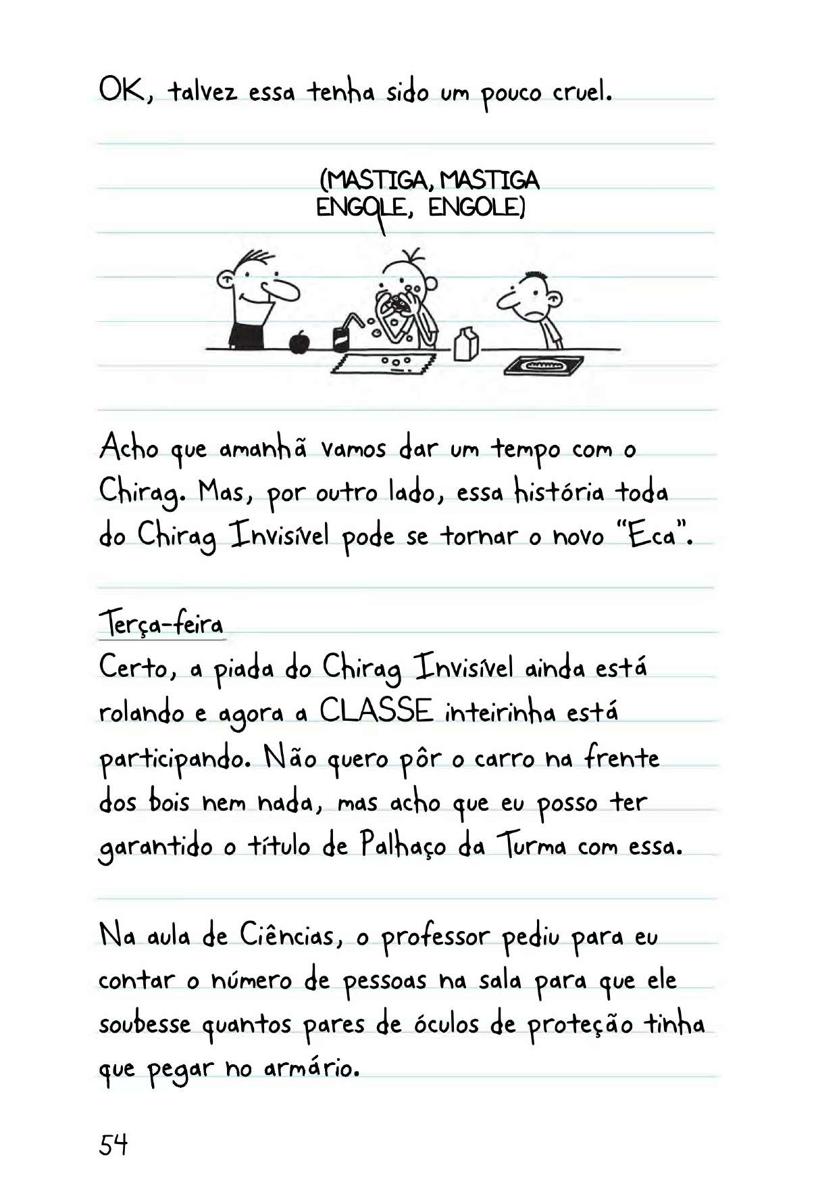 OK, talvez essa tenha sido um pouco cruel.
(MASTIGA, MASTIGA
ENGOLE, ENGOLE)
Acho que amanhã vamos dar um tempo com o
Chirag. Mas, por outro lado, essa história toda
do Chirag Invisível pode se tornar o novo “Eca”.
Terça-feira
Certo, a piada do Chirag Invisível ainda está
rolando e agora a CLASSE inteirinha está
participando. Não quero pôr o carro na frente
dos bois nem nada, mas acho que eu posso ter
garantido o título de Palhaço da Turma com essa.
Na aula de Ciências, o professor pediu para eu
contar o número de pessoas na sala para que ele
soubesse quantos pares de óculos de proteção tinha
que pegar no armário.
54